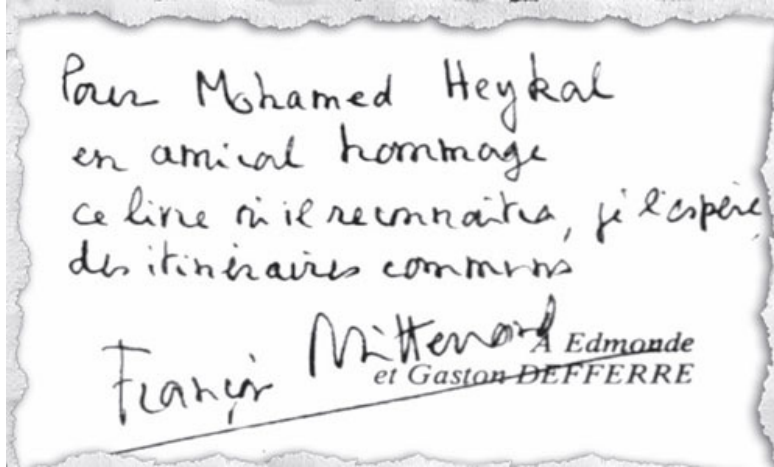 Pour Mohamed Heykal
en amical hommage
ce livre où il reconnaîtra, je l'espère,
des itinéraires communs
François Mitterrand
À Edmonde
et Gaston DEFFERRE